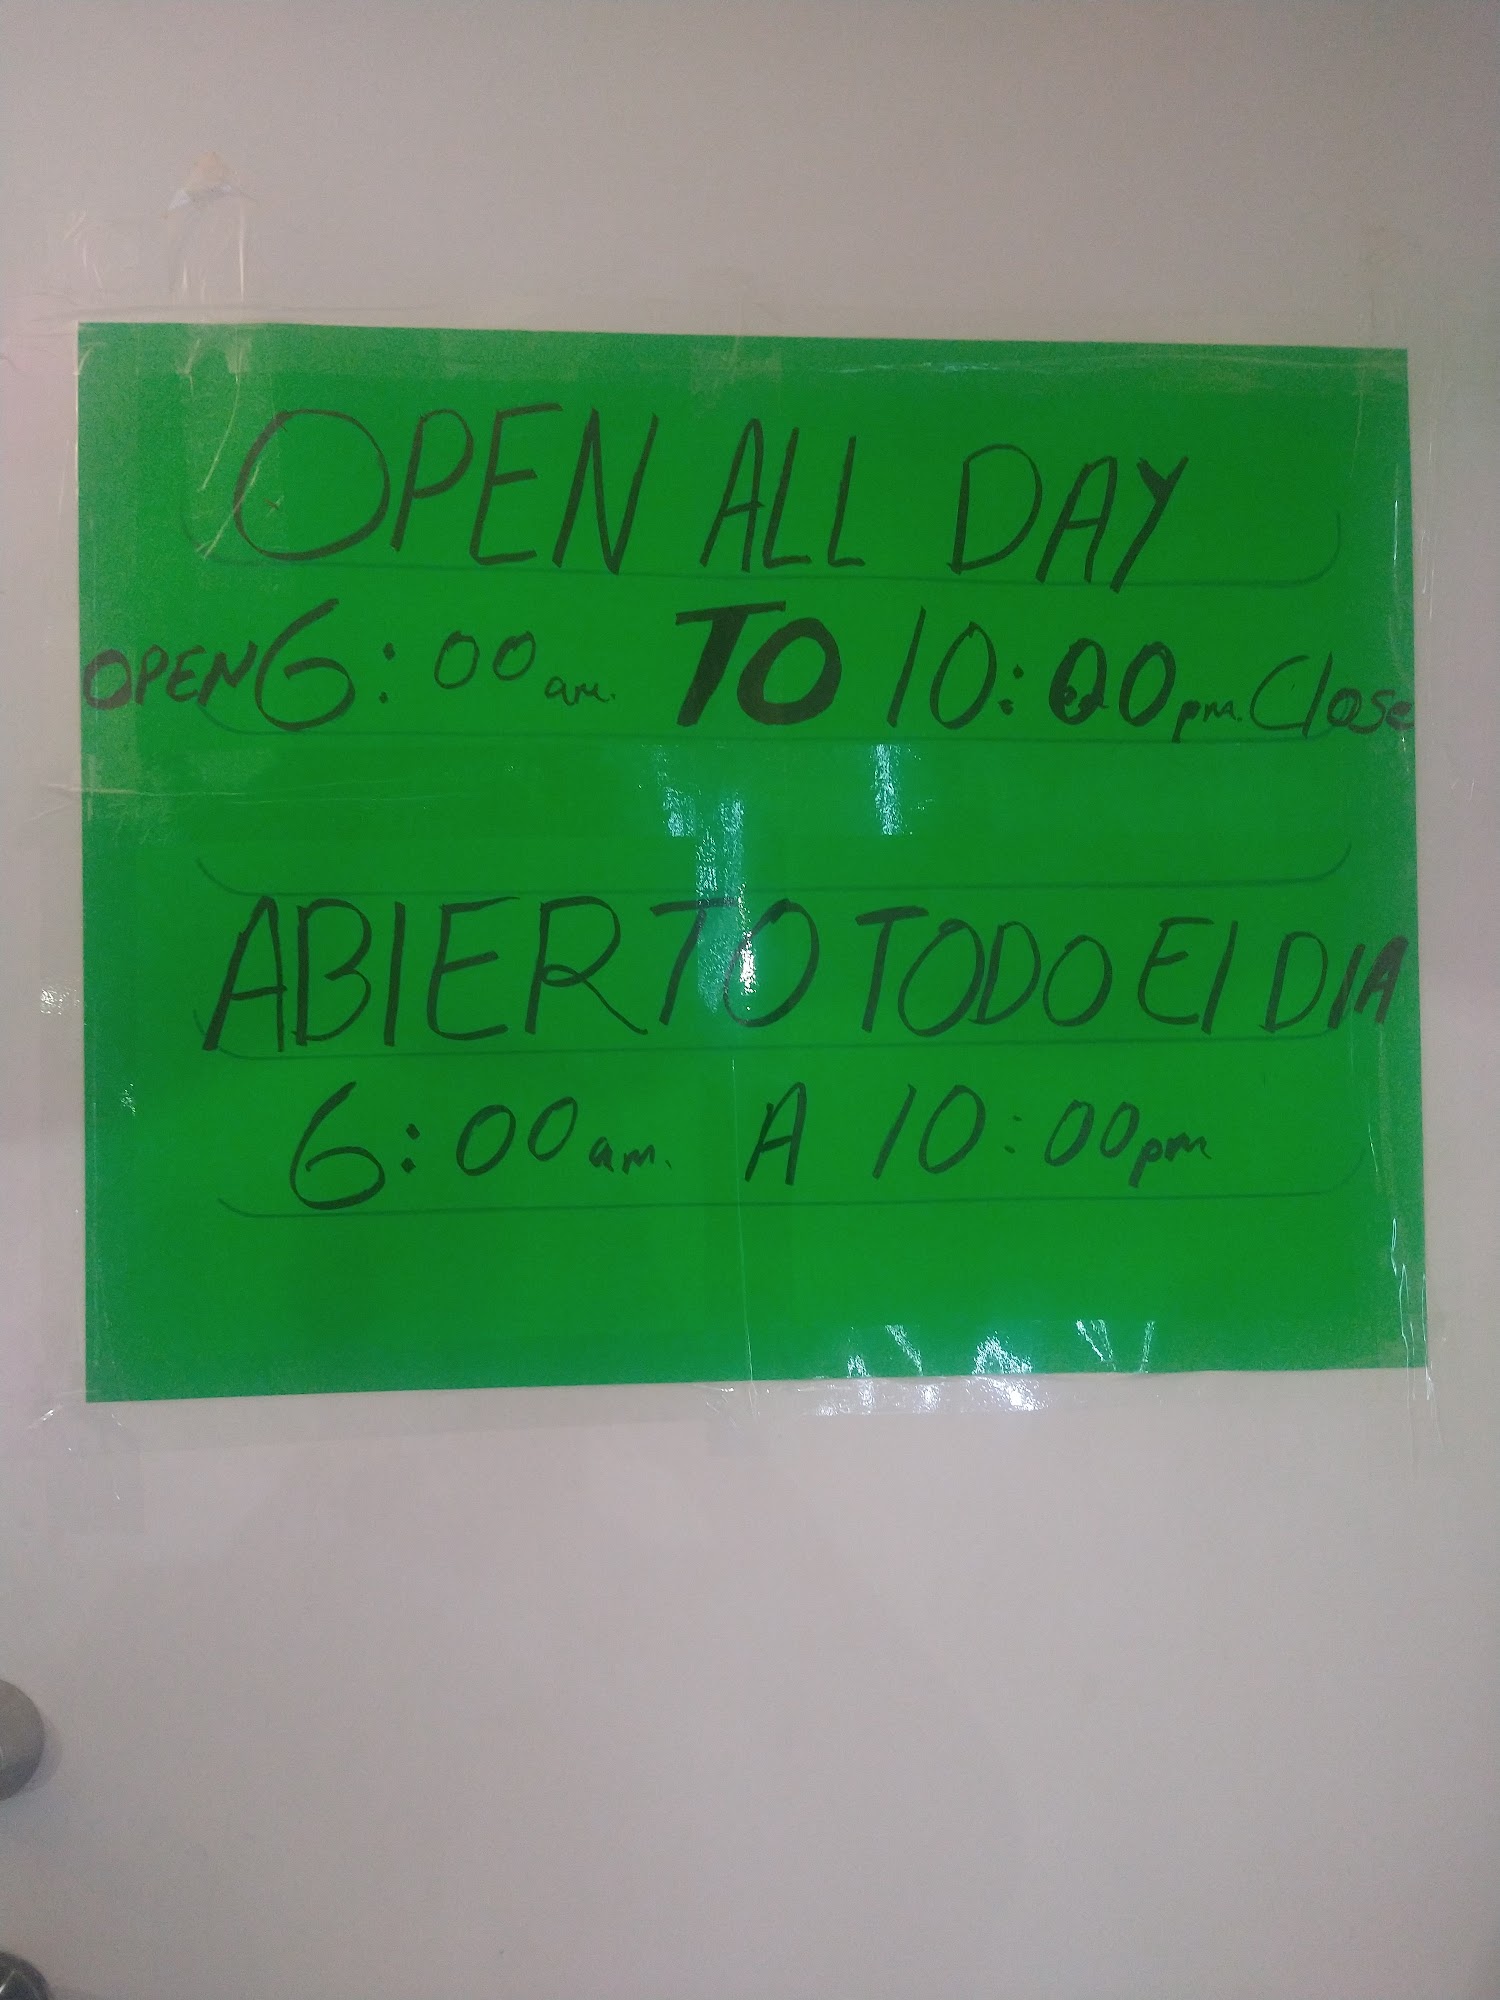 OPEN ALL DAY
OPEN 6:00 am. TO 10:00 pm. Close
ABIERTO TODO El DIA
6:00 am. A 10:00 pm